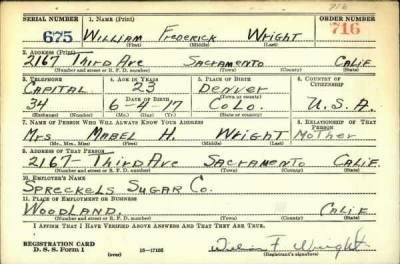 SERIAL NUMBER 1. NAME (Print) ORDER NUMBER
675 WILLIAM FREDERICK WRIGHT 716
(First) (Middle) (Last)
2. ADDRESS (Print)
2167 THIRD AVE SACRAMENTO CALIF.
(Number and street or R. F. D. number) (Town) (County) (State)
3. TELEPHONE 4. AGE IN YEARS 5. PLACE OF BIRTH 6. COUNTRY OF CITIZENSHIP
CAPITAL 23 DENVER
DATE OF BIRTH (Town or county)
34 6-4-17 COLO. U.S.A.
(Exchange) (Number) (Mo.) (Day) (Yr.) (State or country)
7. NAME OF PERSON WHO WILL ALWAYS KNOW YOUR ADDRESS 8. RELATIONSHIP OF THAT PERSON
MRS MABEL H. WRIGHT MOTHER
(Mr., Mrs., Miss) (First) (Middle) (Last)
9. ADDRESS OF THAT PERSON
2167- THIRD AVE SACRAMENTO CALIF.
(Number and street or R. F. D. number) (Town) (County) (State)
10. EMPLOYER'S NAME
SPRECKELS SUGAR CO.
11. PLACE OF EMPLOYMENT OR BUSINESS
WOODLAND. CALIF
(Number and street or R. F. D. number) (Town) (County) (State)
I AFFIRM THAT I HAVE VERIFIED ABOVE ANSWERS AND THAT THEY ARE TRUE.
REGISTRATION CARD
D. S. S. Form 1 (over) William F. Wright
(Registrant's signature)